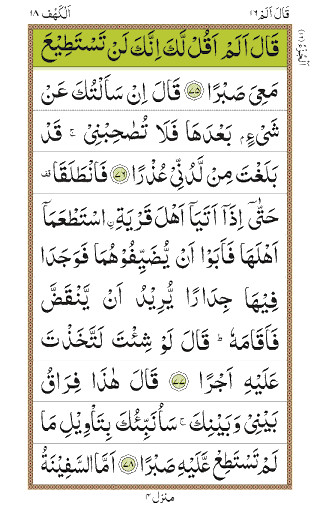 قَالَ اَلَمْ ١٦ اَلْكَهْف ١٨
قَالَ اَلَمْ اَقُلْ لَّكَ اِنَّكَ لَنْ تَسْتَطِيْعَ
مَعِىَ صَبْرًا ٧٥ قَالَ اِنْ سَاَلْتُكَ عَنْ
شَىْءٍۭ بَعْدَهَا فَلَا تُصٰحِبْنِىْ ۚ قَدْ
بَلَغْتَ مِنْ لَّدُنِّىْ عُذْرًا ٧٦ فَانْطَلَقَا ۥقف
حَتّٰۤى اِذَاۤ اَتَيَاۤ اَهْلَ قَرْيَةِ ۨاسْتَطْعَمَاۤ
اَهْلَهَا فَاَبَوْا اَنْ يُّضَيِّفُوْهُمَا فَوَجَدَا
فِيْهَا جِدَارًا يُّرِيْدُ اَنْ يَّنْقَضَّ
فَاَقَامَهٗ ؕ قَالَ لَوْ شِئْتَ لَتَّخَذْتَ
عَلَيْهِ اَجْرًا ٧٧ قَالَ هٰذَا فِرَاقُ
بَيْنِىْ وَبَيْنِكَ ۚ سَاُنَبِّئُكَ بِتَاْوِيْلِ مَا
لَمْ تَسْتَطِعْ عَّلَيْهِ صَبْرًا ٧٨ اَمَّا السَّفِيْنَةُ
منزل ٤